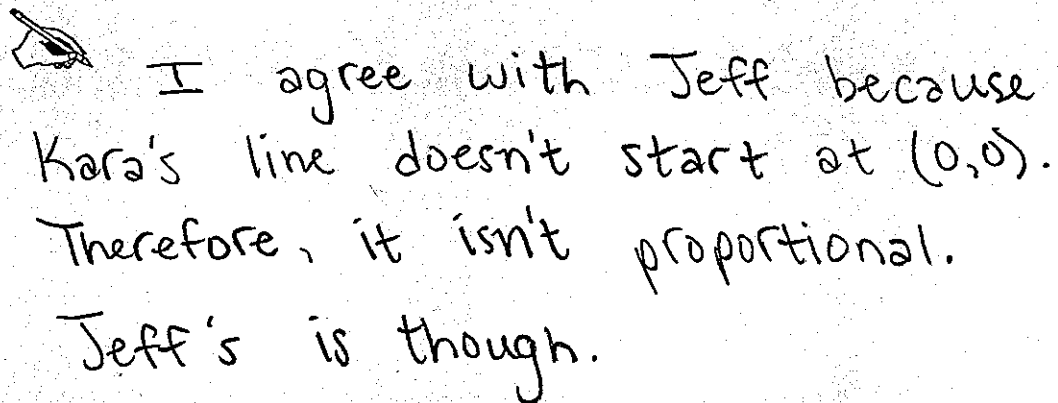 I agree with Jeff because
Kara's line doesn't start at (0,0).
Therefore, it isn't proportional.
Jeff's is though.